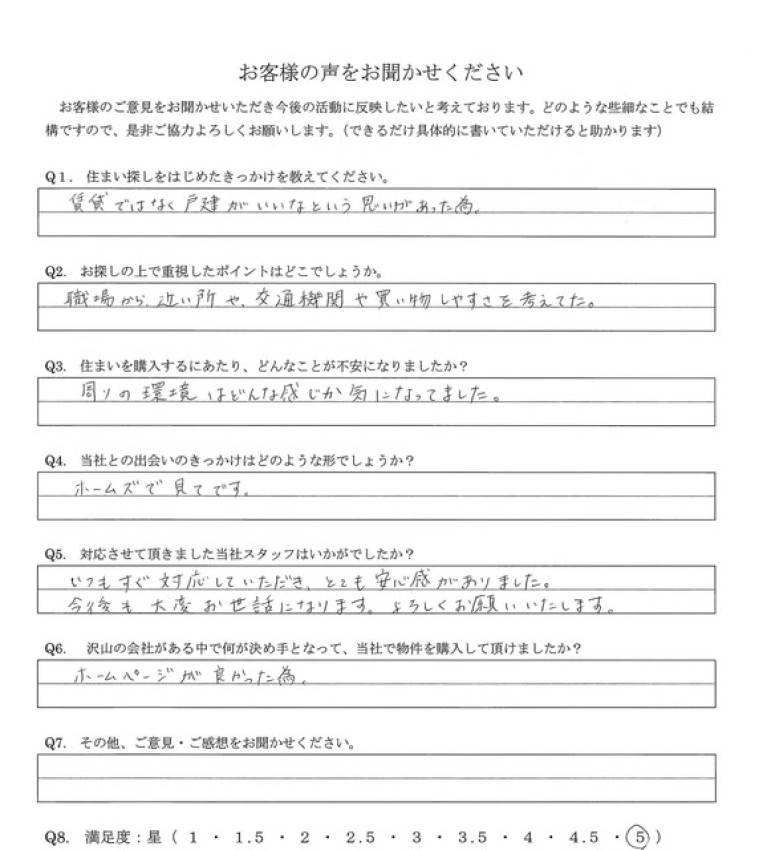 お客様の声をお聞かせください
お客様のご意見をお聞かせいただき今後の活動に反映したいと考えております。どのような些細なことでも結
構ですので、是非ご協力よろしくお願いします。（できるだけ具体的に書いていただけると助かります）
Q1. 住まい探しをはじめたきっかけを教えてください。
賃貸ではなく戸建がいいなという思いがあった為。
Q2. お探しの上で重視したポイントはどこでしょうか。
職場から、近い所や、交通機関や買い物しやすさを考えてた。
Q3. 住まいを購入するにあたり、どんなことが不安になりましたか？
周りの環境はどんな感じか気になってました。
Q4. 当社との出会いのきっかけはどのような形でしょうか？
ホームズで見てです。
Q5. 対応させて頂きました当社スタッフはいかがでしたか？
いつもすぐ対応していただき、とても安心感がありました。
今後も大変お世話になります。よろしくお願いいたします。
Q6. 沢山の会社がある中で何が決め手となって、当社で物件を購入して頂けましたか？
ホームページが良かった為。
Q7. その他、ご意見・ご感想をお聞かせください。
Q8. 満足度：星（ 1 ・ 1.5 ・ 2 ・ 2.5 ・ 3 ・ 3.5 ・ 4 ・ 4.5 ・ 5 ）